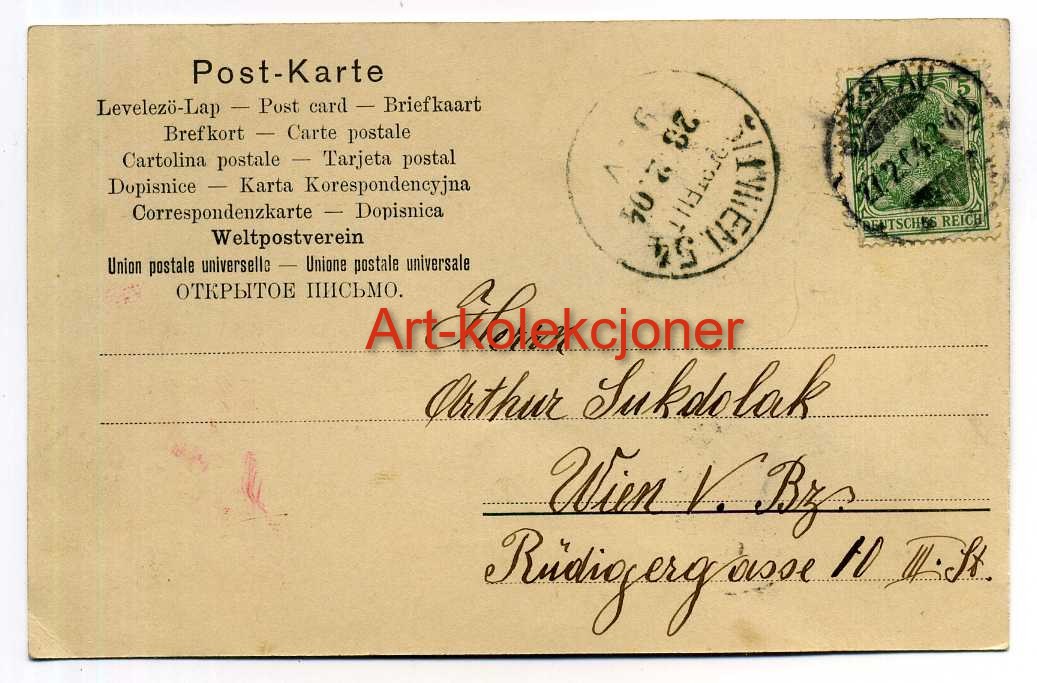 Post-Karte
Levelező-Lap — Post card — Briefkaart
Brefkort — Carte postale
Cartolina postale — Tarjeta postal
Dopisnice — Karta Korespondencyjna
Correspondenzkarte — Dopisnica
Weltpostverein
Union postale universelle — Unione postale universale
ОТКРЫТОЕ ПИСЬМО.
WIEN 54
23 2 04
5
DEUTSCHES REICH
Art-kolekcjoner
Herrn
Arthur Sukdolak
Wien V. Bz.
Rüdigergasse 10 III. St.